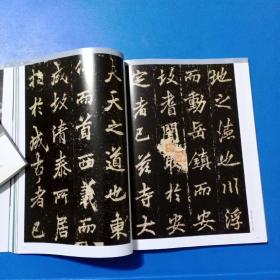 夫天之道也東
仁而首西義而
成故清泰所居
指於成事者已
地之德也川浮
而動岳鎮而安
故耆闍取於安
定者已兹寺大